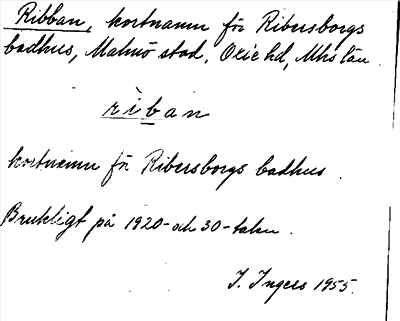 Ribban, kortnamn för Ribersborgs
badhus, Malmö stad, Oxie hd, Mhs län.
rìban
kortnamn för Ribersborgs badhus.
Brukligt på 1920- och 30-talen.
I. Ingers 1955.